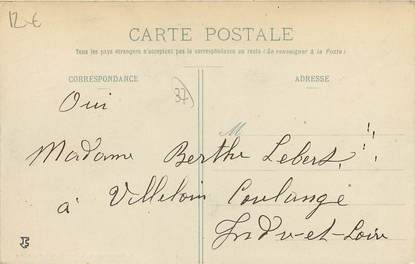 12 €
CARTE POSTALE
Tous les pays étrangers n'acceptent pas la correspondance au recto (Se renseigner à la Poste)
CORRESPONDANCE
ADRESSE
37
Oui
M
!!
Madame Berthe Lebert
à Villeloin Coulangé
Indre-et-Loire